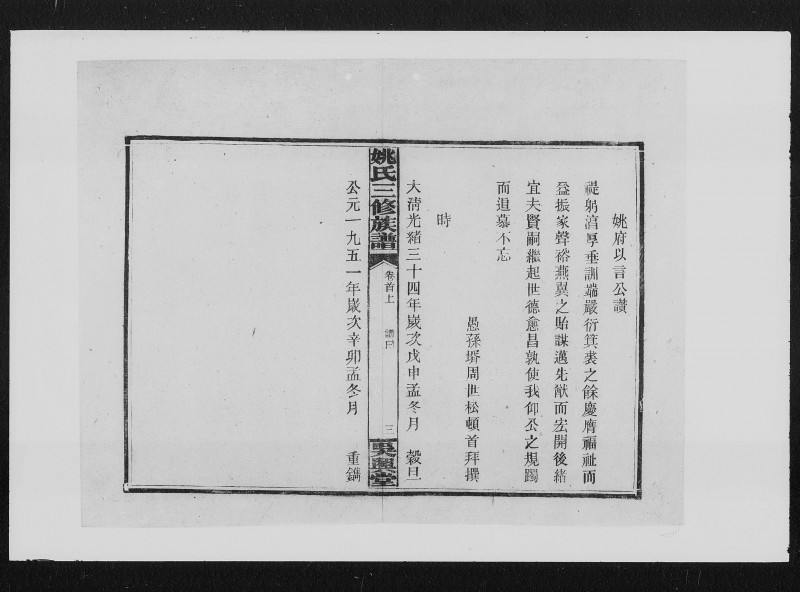 姚府以言公讚
禔躬湻厚垂訓端嚴衍箕裘之餘慶膺福祉而
益振家聲裕燕翼之貽謀邁先猷而宏開後緒
宜夫賢嗣繼起世德愈昌孰使我仰公之規躅
而追慕不忘
愚孫壻周世松頓首拜撰
時
大淸光緒三十四年歲次戊申孟冬月 穀旦
姚氏三修族譜 卷首上 三 吳興堂
公元一九五一年歲次辛卯孟冬月 重鐫